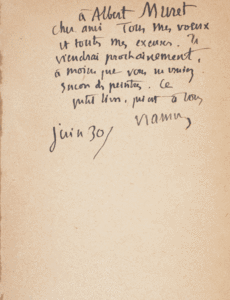 à Albert Muret
cher ami Tous mes voeux
et toutes mes excuses. Je
viendrai prochainement,
à moins que vous ne
de peindre. Ce
petit livre, à vous
Ramuz
juin 30/